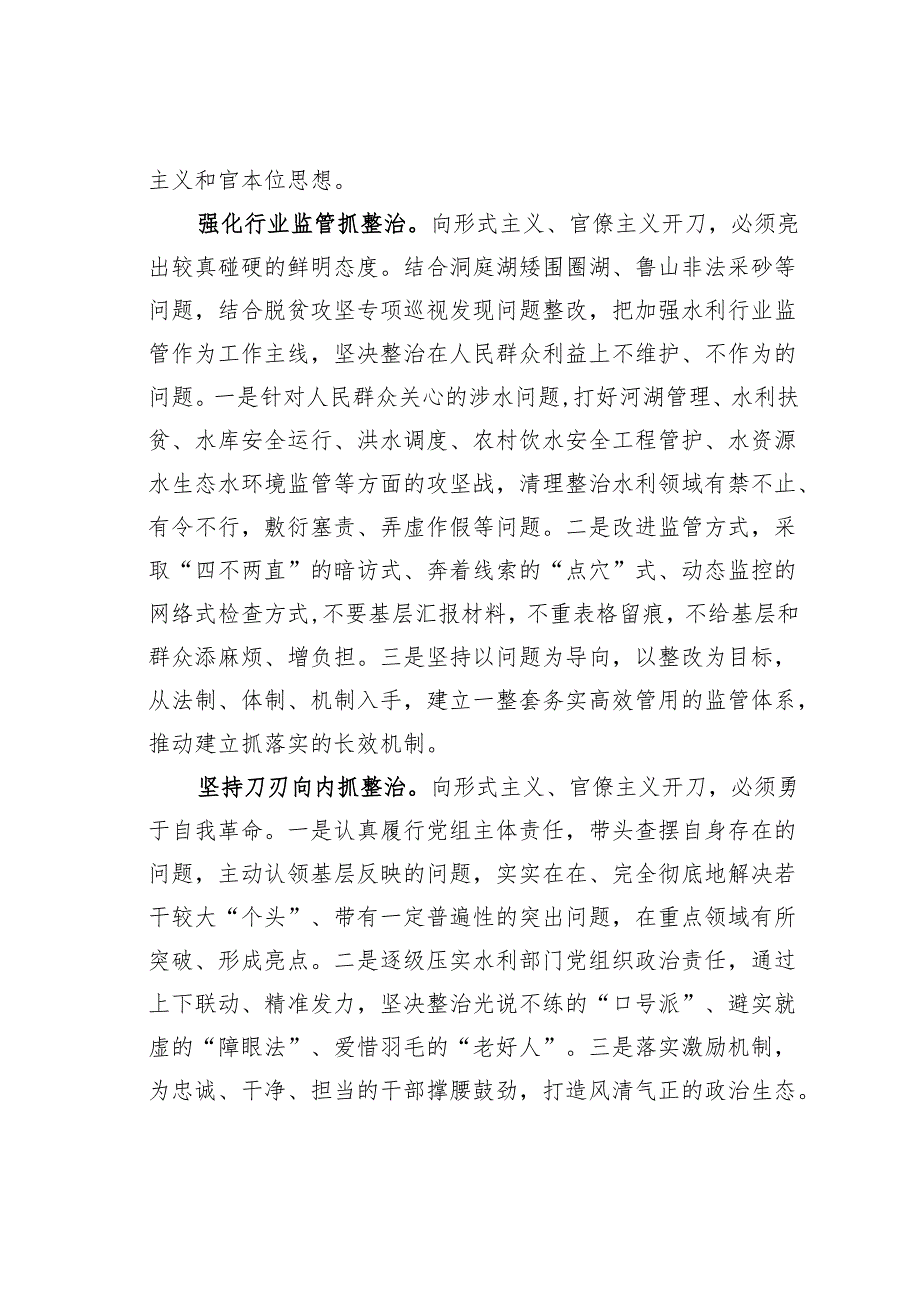 主义和官本位思想。
强化行业监管抓整治。向形式主义、官僚主义开刀，必须亮
出较真碰硬的鲜明态度。结合洞庭湖矮围圈湖、鲁山非法采砂等
问题，结合脱贫攻坚专项巡视发现问题整改，把加强水利行业监
管作为工作主线，坚决整治在人民群众利益上不维护、不作为的
问题。一是针对人民群众关心的涉水问题,打好河湖管理、水利扶
贫、水库安全运行、洪水调度、农村饮水安全工程管护、水资源
水生态水环境监管等方面的攻坚战，清理整治水利领域有禁不止、
有令不行，敷衍塞责、弄虚作假等问题。二是改进监管方式，采
取“四不两直”的暗访式、奔着线索的“点穴”式、动态监控的
网络式检查方式,不要基层汇报材料，不重表格留痕，不给基层和
群众添麻烦、增负担。三是坚持以问题为导向，以整改为目标，
从法制、体制、机制入手，建立一整套务实高效管用的监管体系，
推动建立抓落实的长效机制。
坚持刀刃向内抓整治。向形式主义、官僚主义开刀，必须勇
于自我革命。一是认真履行党组主体责任，带头查摆自身存在的
问题，主动认领基层反映的问题，实实在在、完全彻底地解决若
干较大“个头”、带有一定普遍性的突出问题，在重点领域有所
突破、形成亮点。二是逐级压实水利部门党组织政治责任，通过
上下联动、精准发力，坚决整治光说不练的“口号派”、避实就
虚的“障眼法”、爱惜羽毛的“老好人”。三是落实激励机制，
为忠诚、干净、担当的干部撑腰鼓劲，打造风清气正的政治生态。